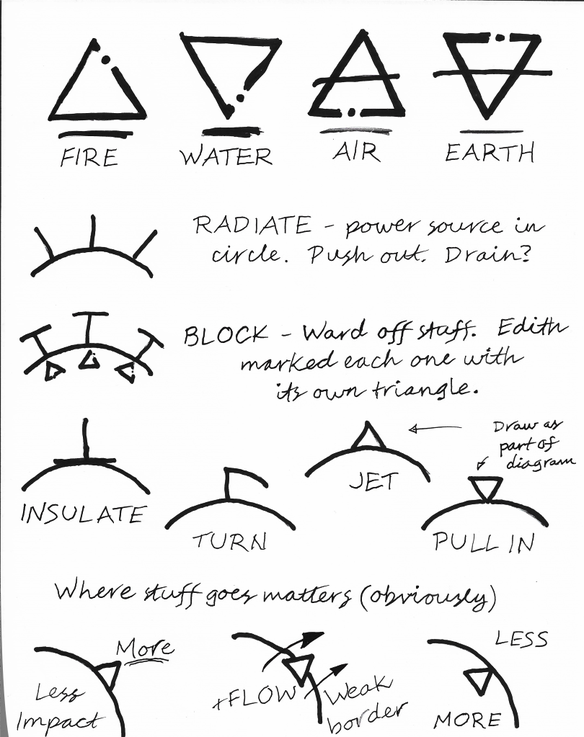 FIRE
WATER
AIR
EARTH
RADIATE - power source in
circle. Push out. Drain?
BLOCK - Ward off stuff. Edith
marked each one with
its own triangle.
Draw as
part of
diagram
INSULATE
TURN
JET
PULL IN
Where stuff goes matters (obviously)
More
Less
Impact
+FLOW
Weak
border
LESS
MORE